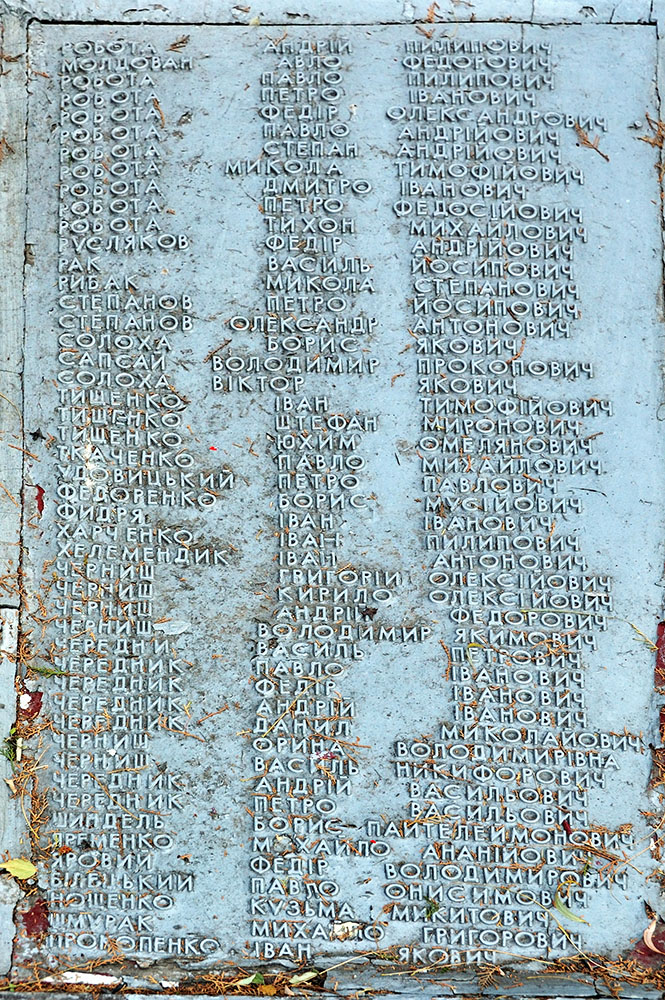 РОБОТА АНДРІЙ ПИЛИПОВИЧ
МОЛДОВАН АВЛО ФЕДОРОВИЧ
РОБОТА ПАВЛО ПИЛИПОВИЧ
РОБОТА ПЕТРО ІВАНОВИЧ
РОБОТА ФЕДІР ОЛЕКСАНДРОВИЧ
РОБОТА ПАВЛО АНДРІЙОВИЧ
РОБОТА СТЕПАН АНДРІЙОВИЧ
РОБОТА МИКОЛА ТИМОФІЙОВИЧ
РОБОТА ДМИТРО ІВАНОВИЧ
РОБОТА ПЕТРО ФЕДОСІЙОВИЧ
РОБОТА ТИХОН МИХАЙЛОВИЧ
РУСЛЯКОВ ФЕДІР АНДРІЙОВИЧ
РАК ВАСИЛЬ ЙОСИПОВИЧ
РИБАК МИКОЛА СТЕПАНОВИЧ
СТЕПАНОВ ПЕТРО ЙОСИПОВИЧ
СТЕПАНОВ ОЛЕКСАНДР АНТОНОВИЧ
СОЛОХА БОРИС ЯКОВИЧ
САПСАЙ ВОЛОДИМИР ПРОКОПОВИЧ
СОЛОХА ВІКТОР ЯКОВИЧ
ТИЩЕНКО ІВАН ТИМОФІЙОВИЧ
ТИЩЕНКО ШТЕФАН МИРОНОВИЧ
ТИЩЕНКО ЮХИМ ОМЕЛЯНОВИЧ
ТКАЧЕНКО ПАВЛО МИХАЙЛОВИЧ
УДОВИЦЬКИЙ ПЕТРО ПАВЛОВИЧ
ФЕДОРЕНКО БОРИС МУСІЙОВИЧ
ФИДРЯ ІВАН ІВАНОВИЧ
ХАРЧЕНКО ІВАН ПИЛИПОВИЧ
ХЕЛЕМЕНДИК ІВАН АНТОНОВИЧ
ЧЕРНИШ ГРИГОРІЙ ОЛЕКСІЙОВИЧ
ЧЕРНИШ КИРИЛО ОЛЕКСІЙОВИЧ
ЧЕРНИШ АНДРІЙ ФЕДОРОВИЧ
ЧЕРНИШ ВОЛОДИМИР ЯКИМОВИЧ
ЧЕРЕДНИК ВАСИЛЬ ПЕТРОВИЧ
ЧЕРЕДНИК ПАВЛО ІВАНОВИЧ
ЧЕРЕДНИК ФЕДІР ІВАНОВИЧ
ЧЕРЕДНИК АНДРІЙ ІВАНОВИЧ
ЧЕРЕДНИК ДАНИЛ МИКОЛАЙОВИЧ
ЧЕРНИШ ОРИНА ВОЛОДИМИРІВНА
ЧЕРНИШ ВАСИЛЬ НИКИФОРОВИЧ
ЧЕРЕДНИК АНДРІЙ ВАСИЛЬОВИЧ
ЧЕРЕДНИК ПЕТРО ВАСИЛЬОВИЧ
ШИНДЕЛЬ БОРИС ПАНТЕЛЕЙМОНОВИЧ
ЯРЕМЕНКО МИХАЙЛО АНАНІЙОВИЧ
ЯРОВИЙ ФЕДІР ВОЛОДИМИРОВИЧ
БІЛЕЦЬКИЙ ПАВЛО ОНИСИМОВИЧ
ЮЩЕНКО КУЗЬМА МИКИТОВИЧ
ШМУРАК МИХАЙЛО ГРИГОРОВИЧ
ПРОКОПЕНКО ІВАН ЯКОВИЧ